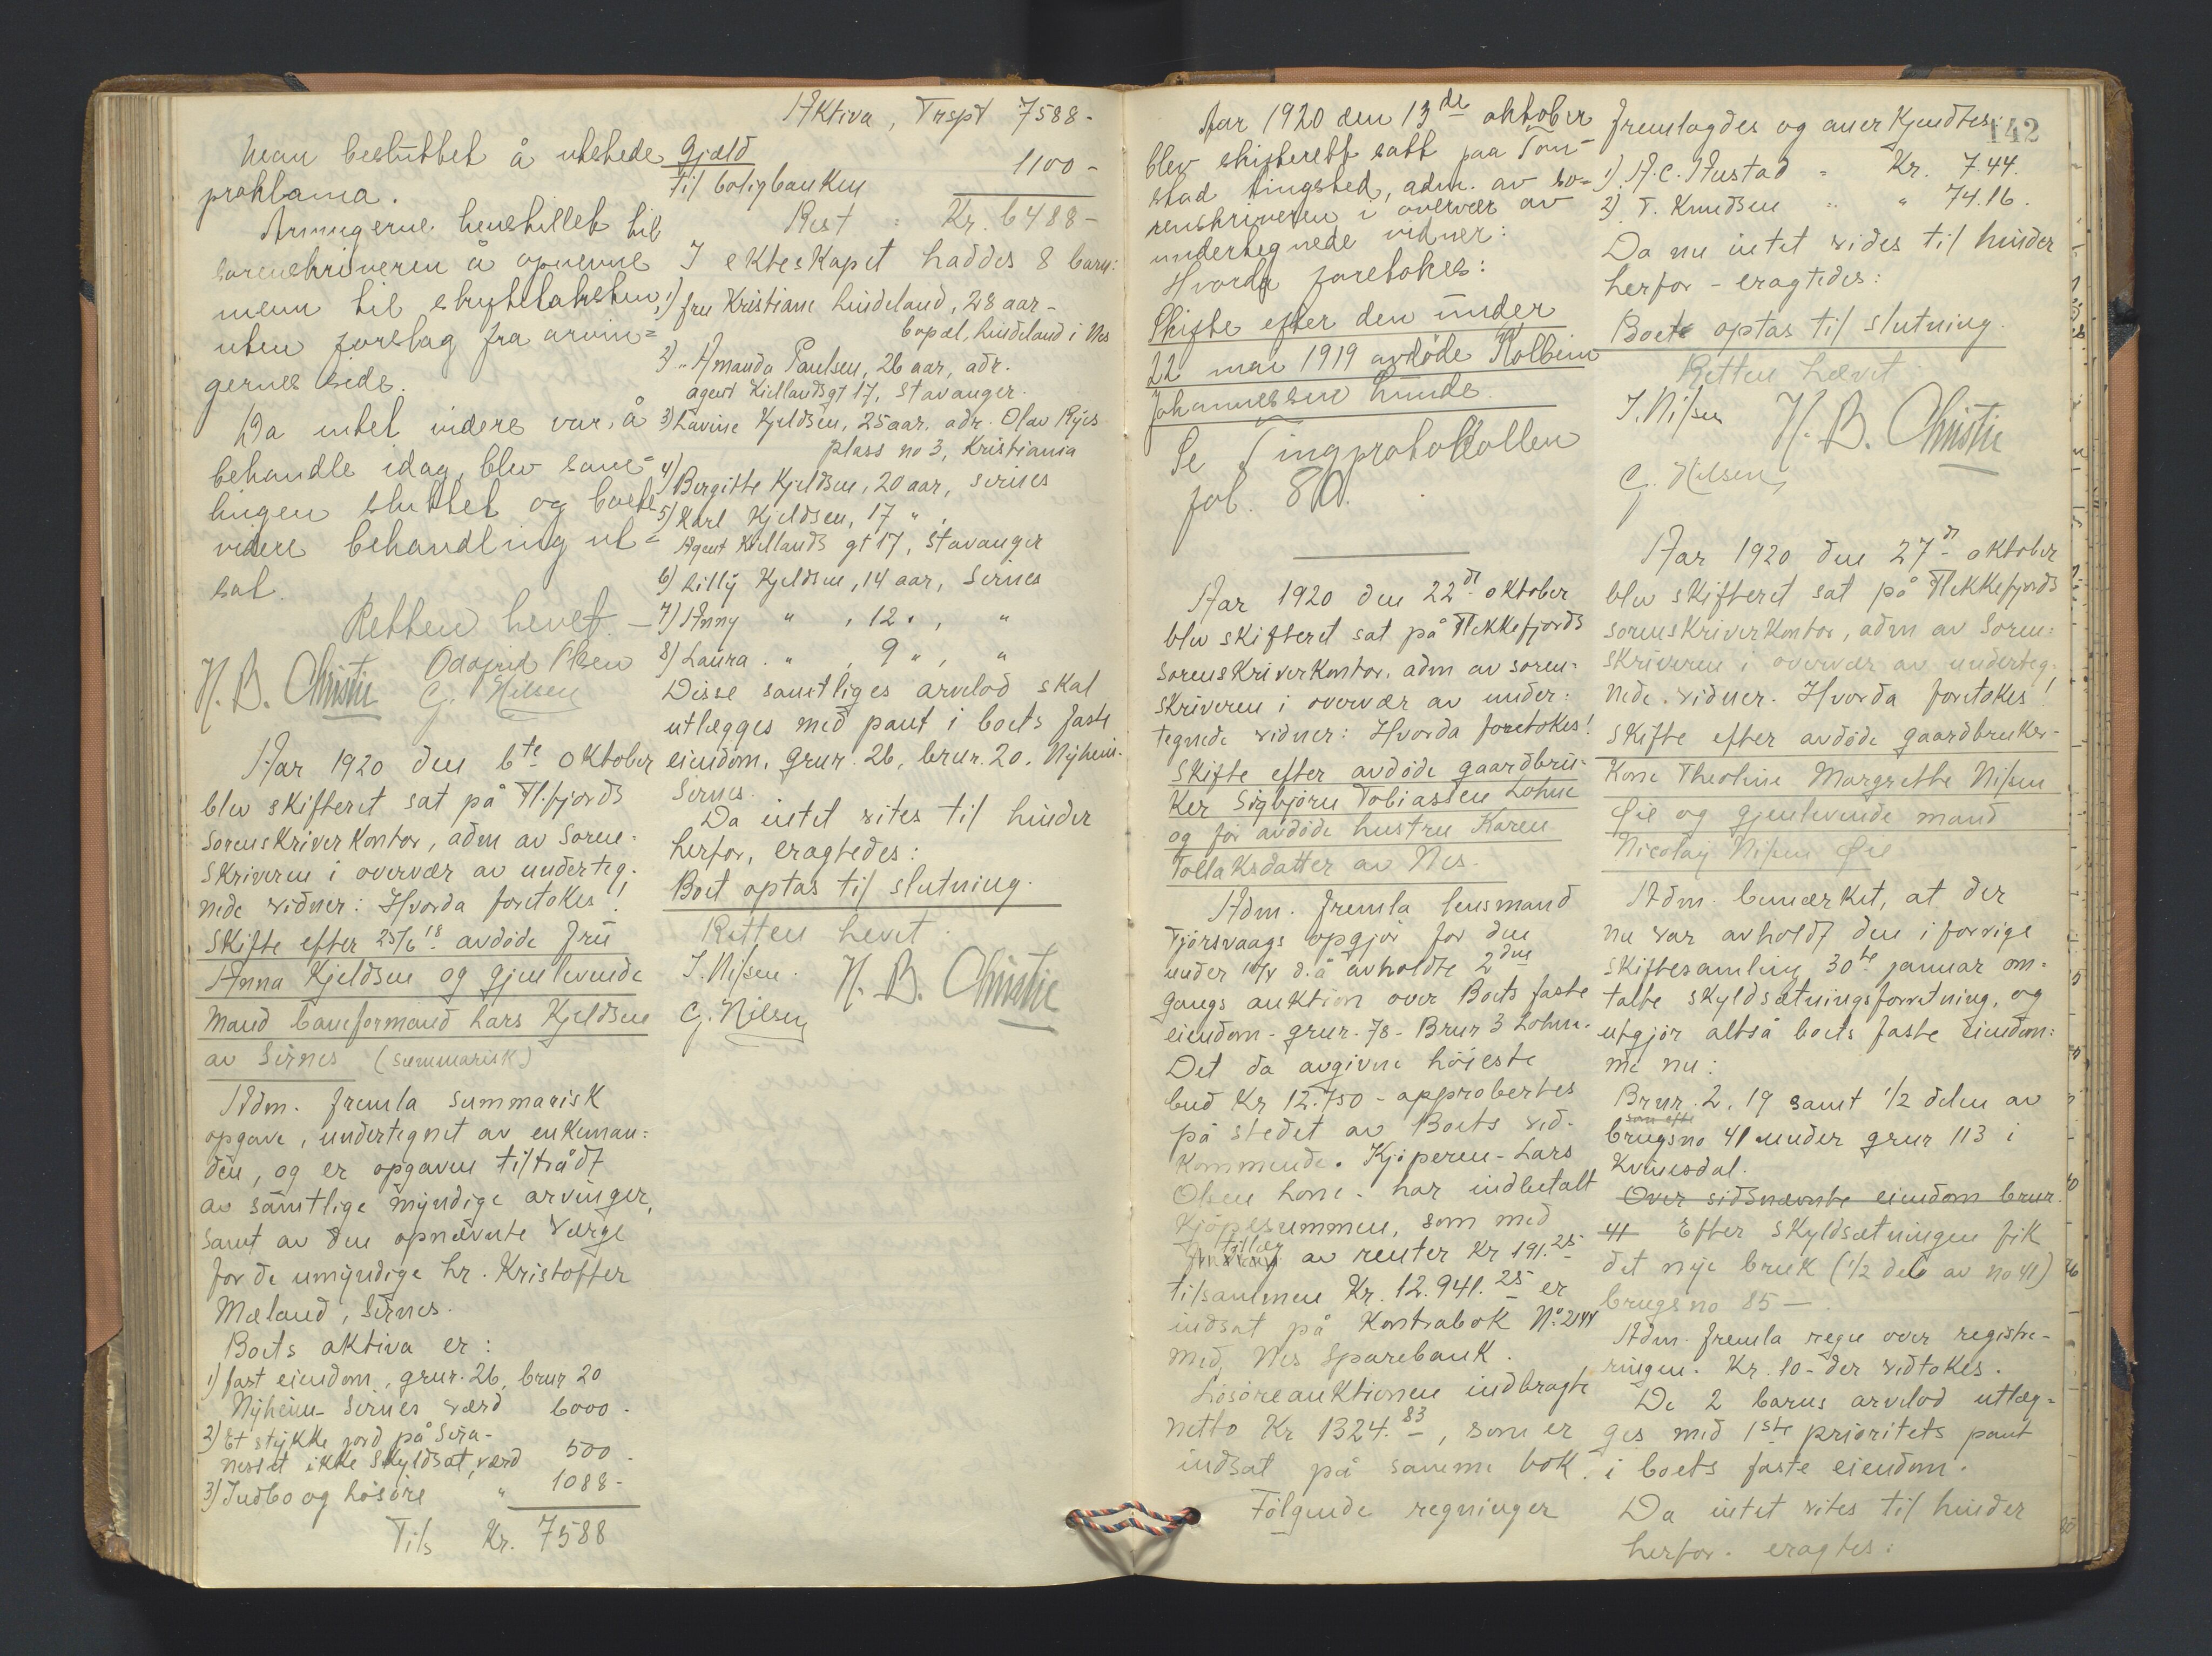 Man besluttet å utstede
proklama.
Arvingerne henstillet til
sorenskriveren å opnevne
menn til skyldtaksten,
uten forslag fra arvin=
gernes side.
Da intet videre var å
behandle idag, blev sam=
lingen sluttet og boets
videre behandling ut=
sat.
Retten hevet. —
H. B. Christie
Olsen
G. Nilsen
Aar 1920 den 6te oktober
blev skifteret sat på Fl.fjords
Sorenskriverkontor, adm av Soren=
skriveren i overvær av underteg.
nede vidner: Hvorda foretokes!
Skifte efter 25/6 18 avdøde fru
Anna Kjeldsen og gjenlevende
mand baneformand Lars Kjeldsen
av Sirnes (summarisk)
Adm. fremla summarisk
opgave, undertegnet av enkeman=
den, og er opgaven tiltrådt
av samtlige myndige arvinger,
samt av den opnævnte værge
for de umyndige hr. Kristoffer
Mæland, Sirnes.
Boets aktiva er:
1) fast eiendom, grur. 26, brur 20
Nyheim Sirnes værd 6000.
2) Et stykke jord på Sira-
nesset ikke skyldsat, værd 500.
3) Indbo og løsøre " 1088-
Tils Kr. 7588
Aktiva, Trspt 7588-
Gjæld
til boligbanken 1100-
Rest : Kr. 6488-
I ekteskapet haddes 8 barn:
1) fru Kristiane Lindeland, 28 aar-
bopæl, Lindeland i Nes
2) " Amanda Paulsen, 26 aar, adr.
agent Kiellandsgt 17, Stavanger.
3) Lavine Kjeldsen, 25 aar. adr. Olav Ryes
plass no 3, Kristiania
4) Bergitte Kjeldsen, 20 aar, Sirnes
5) Karl Kjeldsen, 17 " ,
Agent Kiellands gt 17, Stavanger
6) Lilly Kjeldsen, 14 aar, Sirnes
7) Anny " , 12 " , "
8) Laura . " , 9 " , "
Disse samtliges arvelod skal
utlægges med pant i boets faste
eiendom, grur. 26, brur. 20. Nyheim-
Sirnes.
Da intet vites til hinder
herfor, eragtedes:
Boet optas til slutning.
Retten hevet.
J. Nilsen. H. B. Christie
G. Nilsen
142
Aar 1920 den 13de oktober
blev skifterett satt paa Tom-
stad tingsted, adm. av so=
renskriveren i overvær av
undertegnede vidner:
Hvorda foretokes:
Skifte efter den under
22 mai 1919 avdøde Kolbein
Johannessen Lunde.
Se Tingprotokollen
fol. 80.
Aar 1920 den 22de oktober
blev skifteret sat på Flekkefjords
Sorenskriverkontor, adm av soren=
skriveren i overvær av under=
tegnede vidner: Hvorda foretokes!
Skifte efter avdøde gaardbru-
ker Sigbjørn Tobiassen Lohne
og før avdøde hustru Karen
Tollaksdatter av Nes.
Adm. fremla lensmand
Fjørsvaags opgjør for den
under 10/4 d.å avholdte 2den
gangs auktion over Boets faste
eiendom - grur. 78 - Brur 3 Lohne.
Det da avgivne høieste
bud Kr 12.750 - approbertes
på stedet av Boets ved-
kommende. Kjøperen - Lars
Olsen Lone - har indbetalt
kjøpesummen, som med
tillæg av renter Kr 191.25
tilsammen Kr. 12.941.25 er
indsat på Kontrabok No 2144
med Nes Sparebank.
Løsøreauktionen indbragte
netto Kr 1324.83, som er
indsat på samme bok.
Følgende regninger
fremlagdes og anerkjendtes:
1) A. C. Austad - Kr. 7.44.
2) T. Knudsen " " 74.16.
Da nu intet vides til hinder
herfor - eragtedes:
Boet optas til slutning.
Retten hævet.
J. Nilsen H. B. Christie
G. Nilsen
Aar 1920 den 27de oktober
blev skifteret sat på Flekkefjords
sorenskriverkontor, adm av Soren=
skriveren i overvær av underteg=
nede vidner. Hvorda foretokes!
Skifte efter avdøde gaardbruker-
kone Theoline Margrethe Nilsen
Øie og gjenlevende mand
Nicolay Nilsen Øie
Adm. bemærket, at der
nu var avholdt den i forrige
skiftesamling 30te januar om=
talte skyldsætningsforretning, og
utgjør altså boets faste eiendom=
me nu:
Brur. 2, 19 samt 1/2 delen av
brugsno 41 under grur 113 i
Kvinesdal.
Over sidsnævnte eiendom brur.
41 Efter skyldsætningen fik
det nye bruk (1/2 del av no 41)
brugsno 85 —.
Adm. fremla regn over registre-
ringen. Kr. 10- der vedtokes.
De 2 barns arvelod utlæg=
ges med 1ste prioritets pant
i boets faste eiendom.
Da intet vites til hinder
herfor. eragtes: